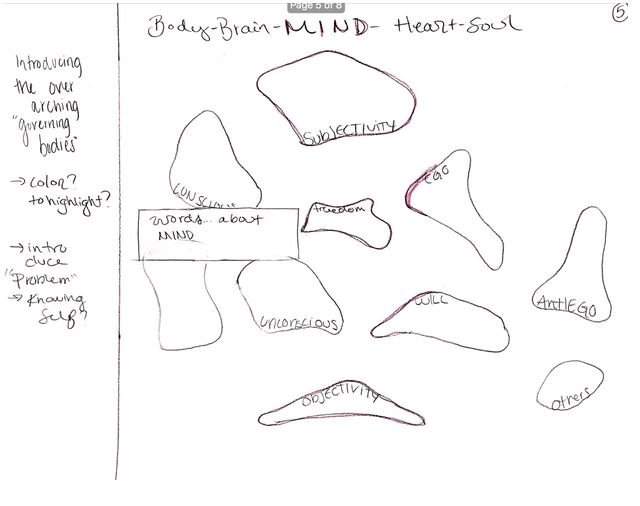 Page 5 of 8
5
Body-Brain-MIND- Heart-Soul
Introducing
the over
arching
"governing
bodies"
→ color?
to highlight?
→ intro
duce
"Problem"
→ Knowing
Self?
SUBJECTIVITY
CONSCIOUS
EGO
freedom
words... about
MIND
AntiEGO
WILL
Unconscious
OBJECTIVITY
others